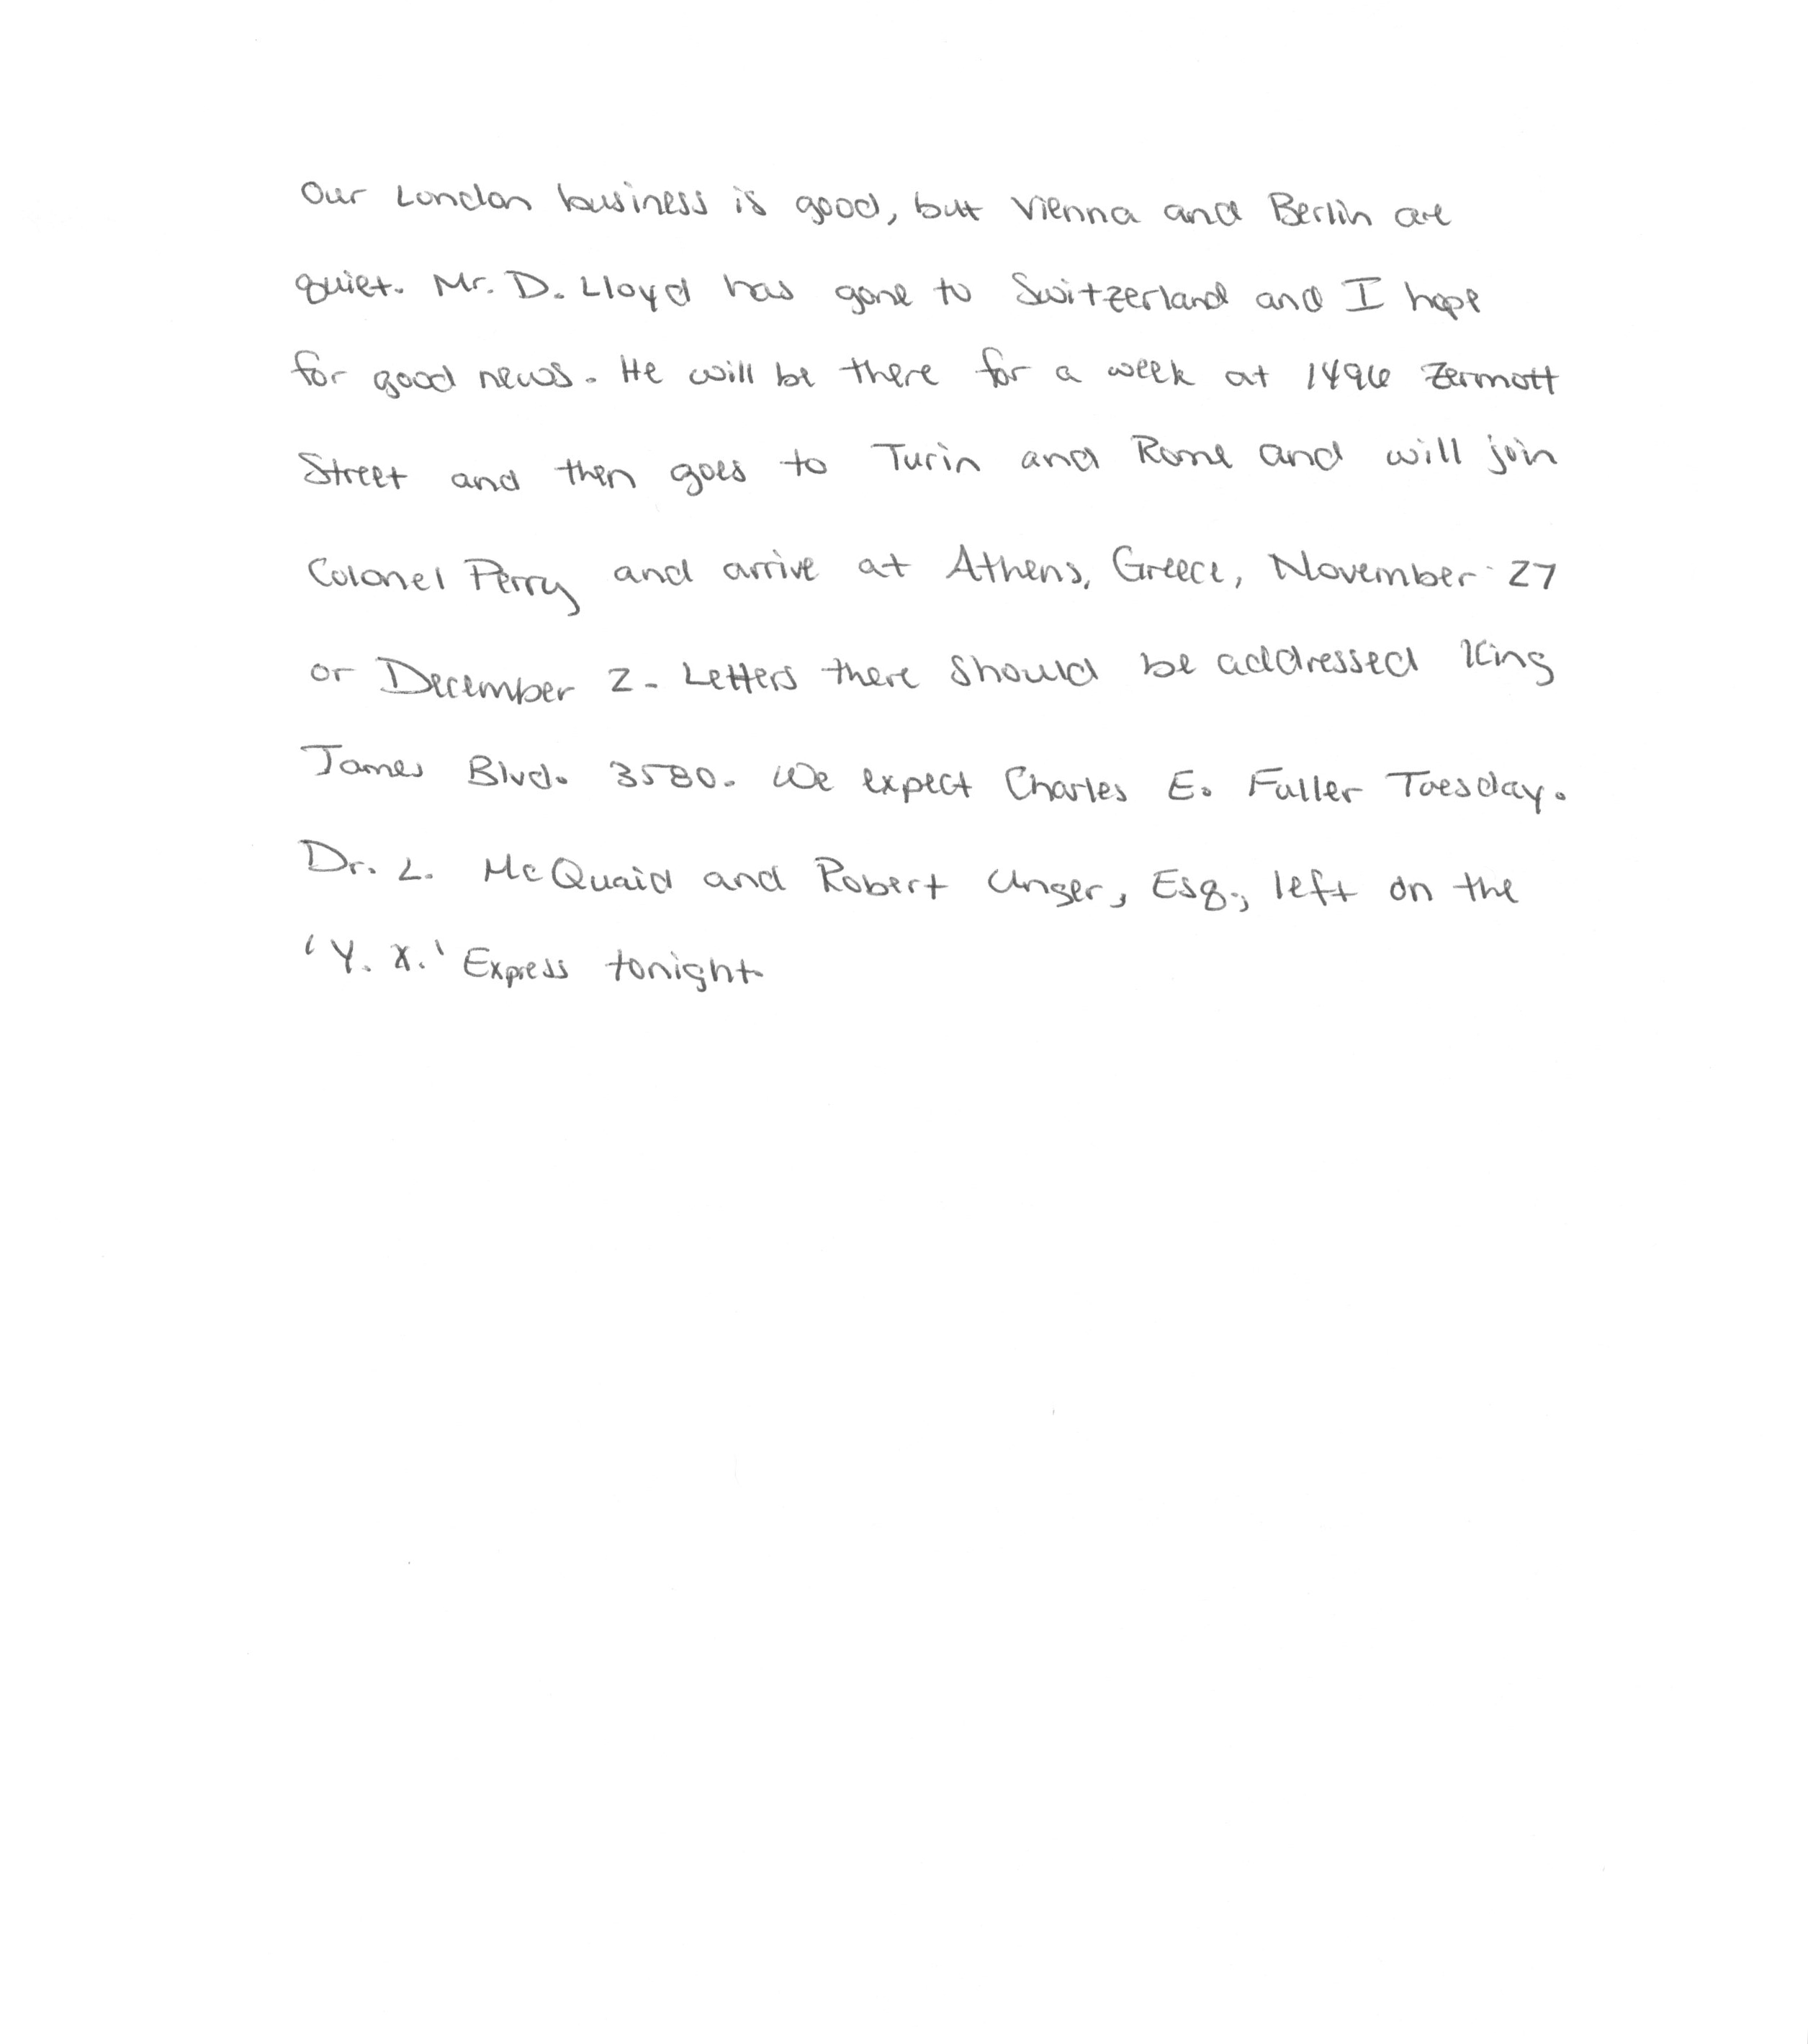 Our London business is good, but Vienna and Berlin are
quiet. Mr. D. Lloyd has gone to Switzerland and I hope
for good news. He will be there for a week at 1496 Zermott
Street and then goes to Turin and Rome and will join
Colonel Perry and arrive at Athens, Greece, November 27
or December 2. Letters there should be addressed King
James Blvd. 3580. We expect Charles E. Fuller Tuesday.
Dr. L. McQuaid and Robert Unger, Esq., left on the
'Y. X.' Express tonight.